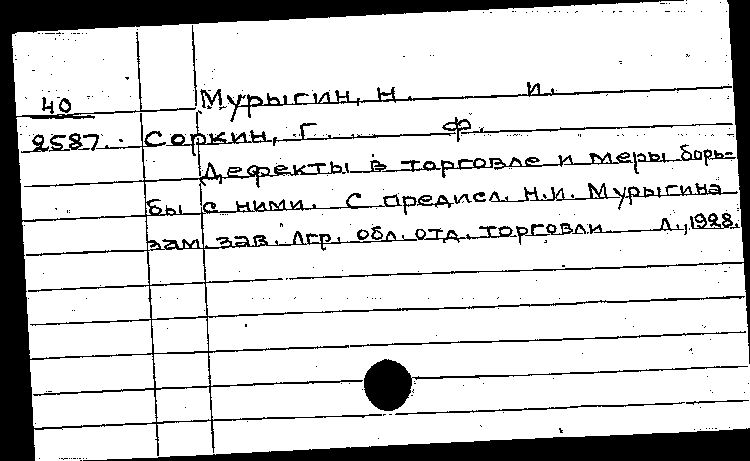 Мурыгин, Н. И.
40
2587. Соркин, Г. Ф.
Дефекты в торговле и меры борь=
бы с ними. С предисл. Н.И. Мурыгина
зам. зав. Лгр. обл. отд. торговли Л., 1928.